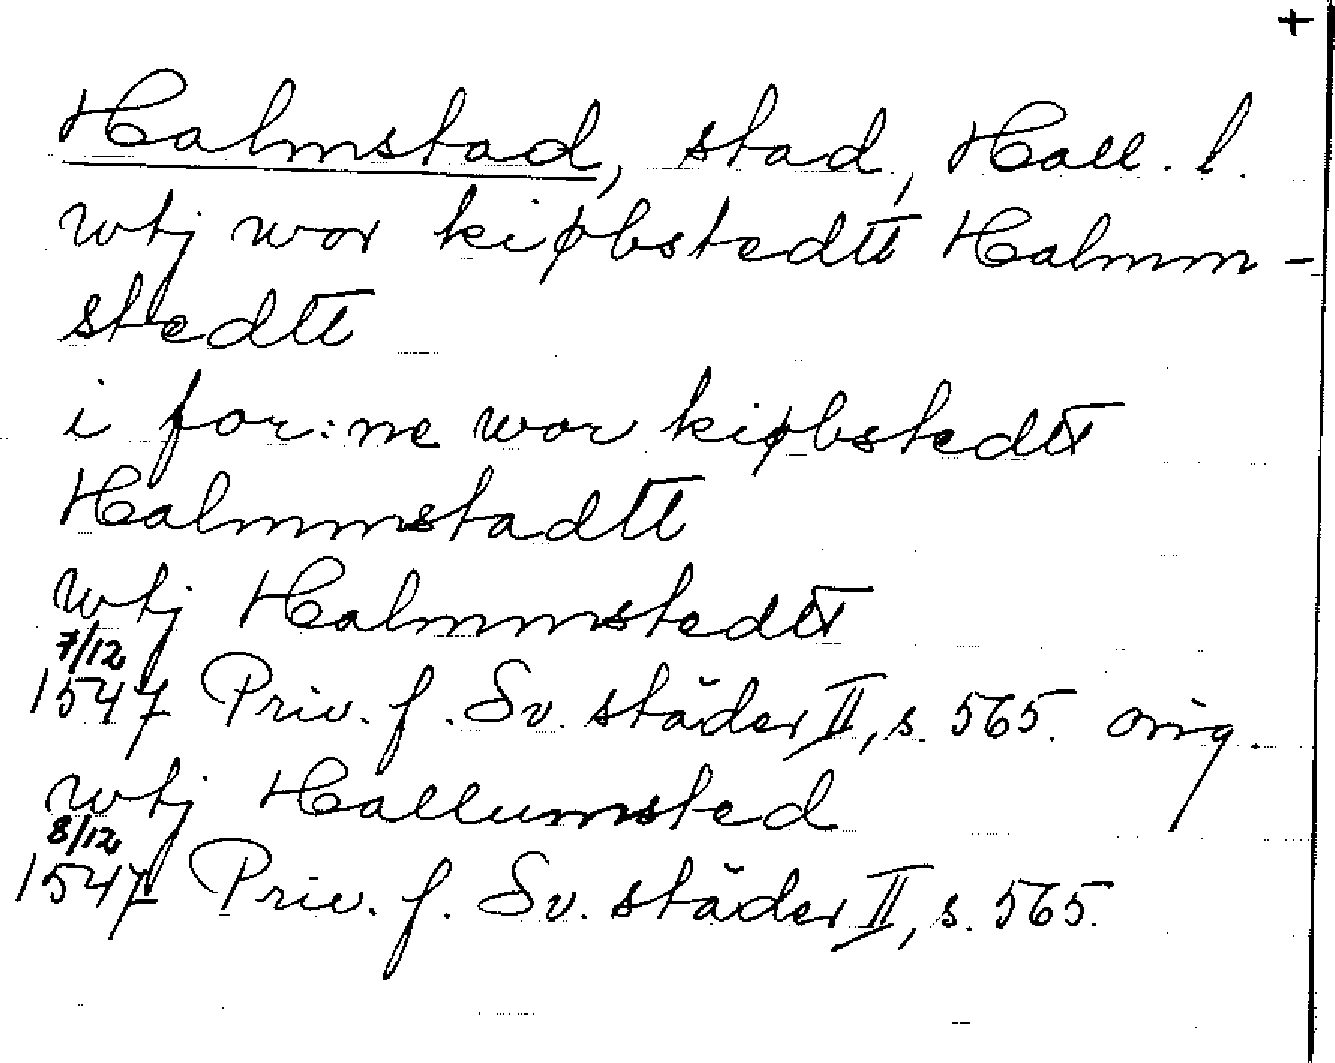 +
Halmstad, stad, Hall. l.
wtj wor kiøbstedtt Halmm-
stedtt
i for:ne wor kiøbstedtt
Halmmstadtt
wtj Halmmstedtt
7/12
1547 Priv. f. Sv. städer II, s. 565. orig.
wtj Hallumsted
8/12
1547 Priv. f. Sv. städer II, s. 565.